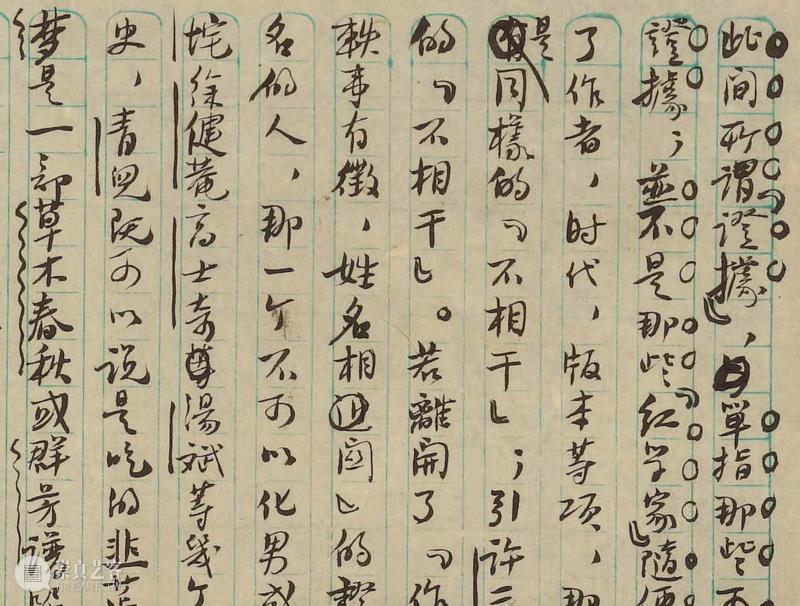 此間所謂「證據」,單指那些
證據;並不是那些「紅学家」隨便
了作者,时代,版本等項,那
是同樣的「不相干」;引許三
的「不相干」。若離開了「作
軼事有徵,姓名相関」的證
名的人,那一个不可以化男成
垞徐健菴高士奇湯斌等幾个
史,青兒既可以说是吃的韭菜
梦是一部草木春秋或群芳譜